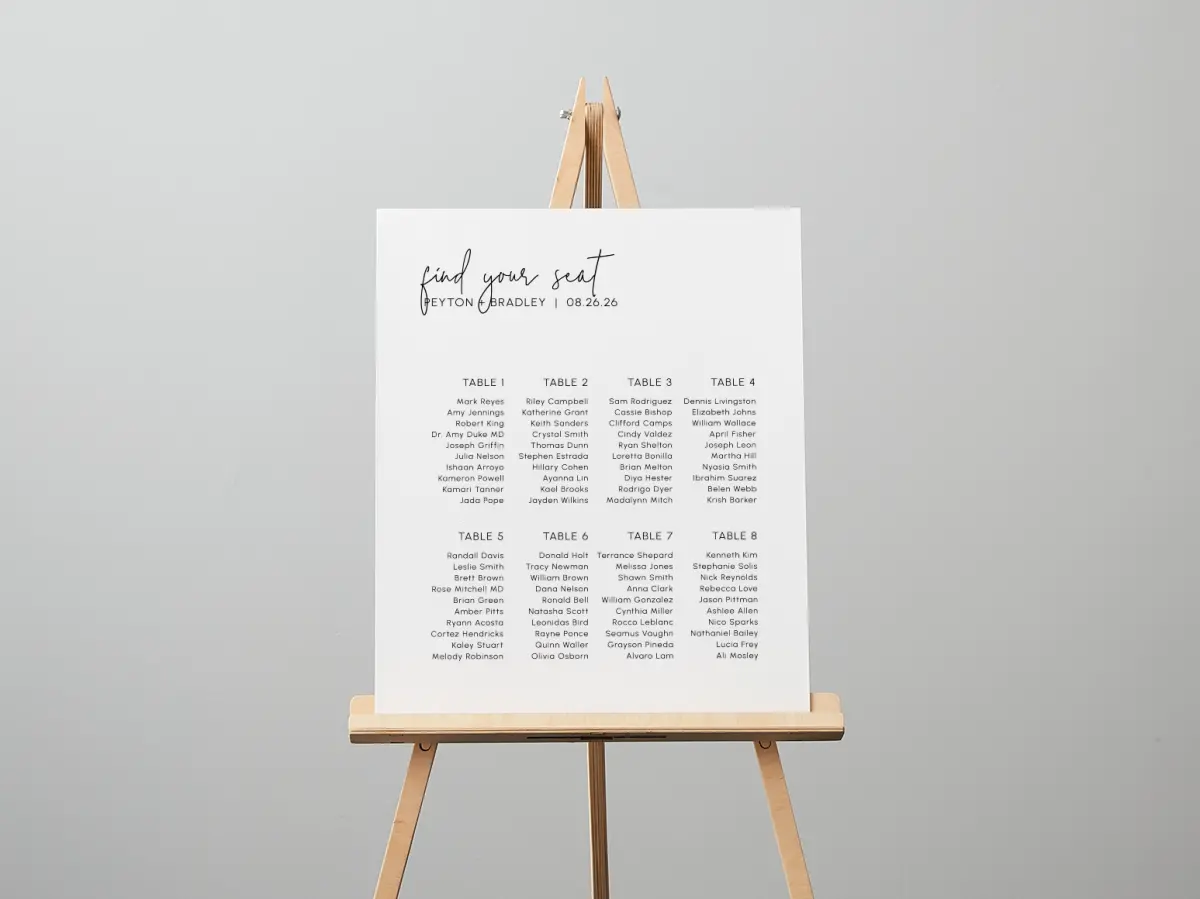 find your seat
PEYTON + BRADLEY | 08.26.26
TABLE 1
Mark Reyes
Amy Jennings
Robert King
Dr. Amy Duke MD
Joseph Griffin
Julia Nelson
Ishaan Arroyo
Kameron Powell
Kamari Tanner
Jada Pope
TABLE 2
Riley Campbell
Katherine Grant
Keith Sanders
Crystal Smith
Thomas Dunn
Stephen Estrada
Hillary Cohen
Ayanna Lin
Kael Brooks
Jayden Wilkins
TABLE 3
Sam Rodriguez
Cassie Bishop
Clifford Camps
Cindy Valdez
Ryan Shelton
Loretta Bonilla
Brian Melton
Diya Hester
Rodrigo Dyer
Madalynn Mitch
TABLE 4
Dennis Livingston
Elizabeth Johns
William Wallace
April Fisher
Joseph Leon
Martha Hill
Nyasia Smith
Ibrahim Suarez
Belen Webb
Krish Barker
TABLE 5
Randall Davis
Leslie Smith
Brett Brown
Rose Mitchell MD
Brian Green
Amber Pitts
Ryann Acosta
Cortez Hendricks
Kaley Stuart
Melody Robinson
TABLE 6
Donald Holt
Tracy Newman
William Brown
Dana Nelson
Ronald Bell
Natasha Scott
Leonidas Bird
Rayne Ponce
Quinn Waller
Olivia Osborn
TABLE 7
Terrance Shepard
Melissa Jones
Shawn Smith
Anna Clark
William Gonzalez
Cynthia Miller
Rocco Leblanc
Seamus Vaughn
Grayson Pineda
Alvaro Lam
TABLE 8
Kenneth Kim
Stephanie Solis
Nick Reynolds
Rebecca Love
Jason Pittman
Ashlee Allen
Nico Sparks
Nathaniel Bailey
Lucia Frey
Ali Mosley